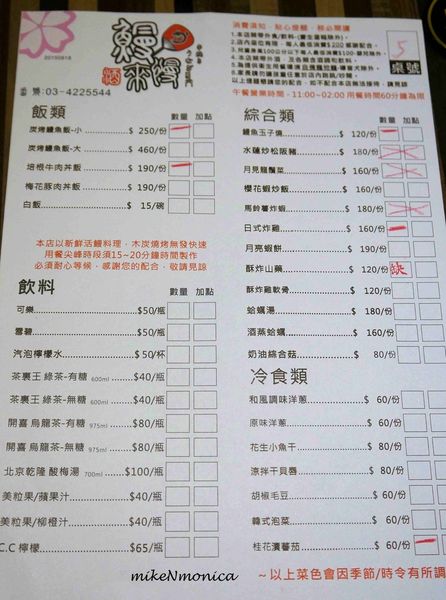 20150818
鰻來慢
酒
訂購:03-4225544
桌號
5
午餐營業時間-11:00~02:00 用餐時間60分鐘為限
飯類 數量 加點
炭烤鰻魚飯-小 $ 250/份
炭烤鰻魚飯-大 $ 460/份
培根牛肉丼飯 $ 190/份
梅花豚肉丼飯 $ 190/份
白飯 $ 15/碗
本店以新鮮活鰻料理、木炭燒烤無發快速
用餐尖峰時段須15~20分鐘時間製作
必須耐心等候,感謝您的配合,敬請見諒
飲料 數量 加點
可樂 $50/瓶
雪碧 $50/瓶
汽泡檸檬水 $50/杯
茶裏王 綠茶-有糖 600ml $40/瓶
茶裏王 綠茶-無糖 600ml $40/瓶
開喜 烏龍茶-有糖 975ml $80/瓶
開喜 烏龍茶-無糖 975ml $80/瓶
北京乾隆 酸梅湯 700ml $100/瓶
美粒果/蘋果汁 $40/瓶
美粒果/柳橙汁 $40/瓶
C.C 檸檬 $65/瓶
綜合類 數量 加點
鰻魚玉子燒 $ 120/份
水蓮炒松阪豬 $ 180/份
月見龍鬚菜 $ 160/份
櫻花蝦炒飯 $ 160/份
馬鈴薯炸蝦 $ 180/份
日式炸雞 $ 160/份
月亮蝦餅 $ 190/份
酥炸山藥 $ 120/份
酥炸雞軟骨 $ 120/份
蛤蠣湯 $ 180/份
酒蒸蛤蠣 $ 160/份
奶油綜合菇 $ 80/份
冷食類 數量 加點
和風調味洋蔥 $ 60/份
原味洋蔥 $ 60/份
花生小魚干 $ 60/份
涼拌干貝唇 $ 60/份
胡椒毛豆 $ 60/份
韓式泡菜 $ 60/份
桂花漬蕃茄 $ 60/份
~以上菜色會因季節/時令有所調
mikeNmonica